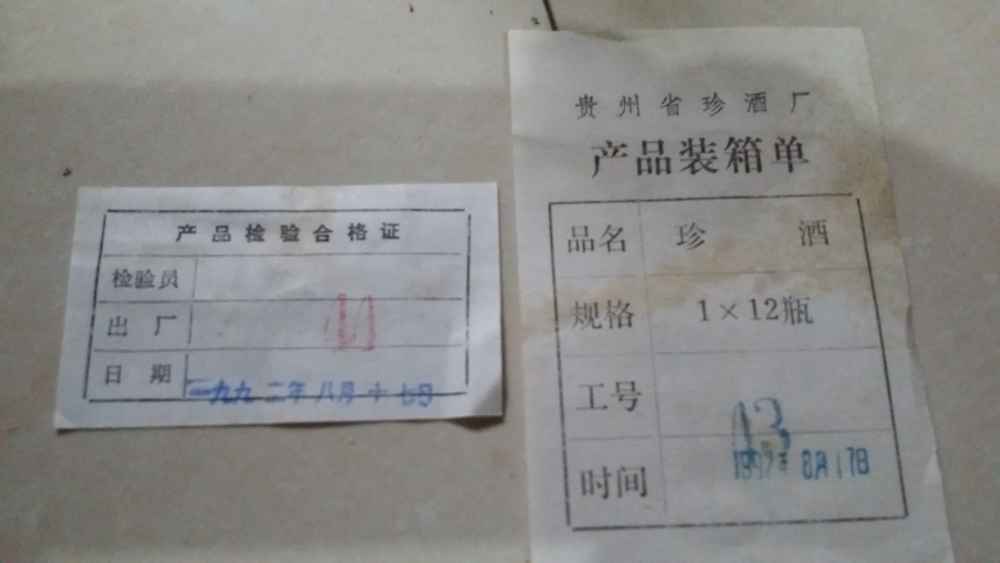 产品检验合格证
检验员
出厂
日期 一九九二年八月十七号
贵州省珍酒厂
产品装箱单
品名 珍酒
规格 1×12瓶
工号 13
时间 1992年8月17日